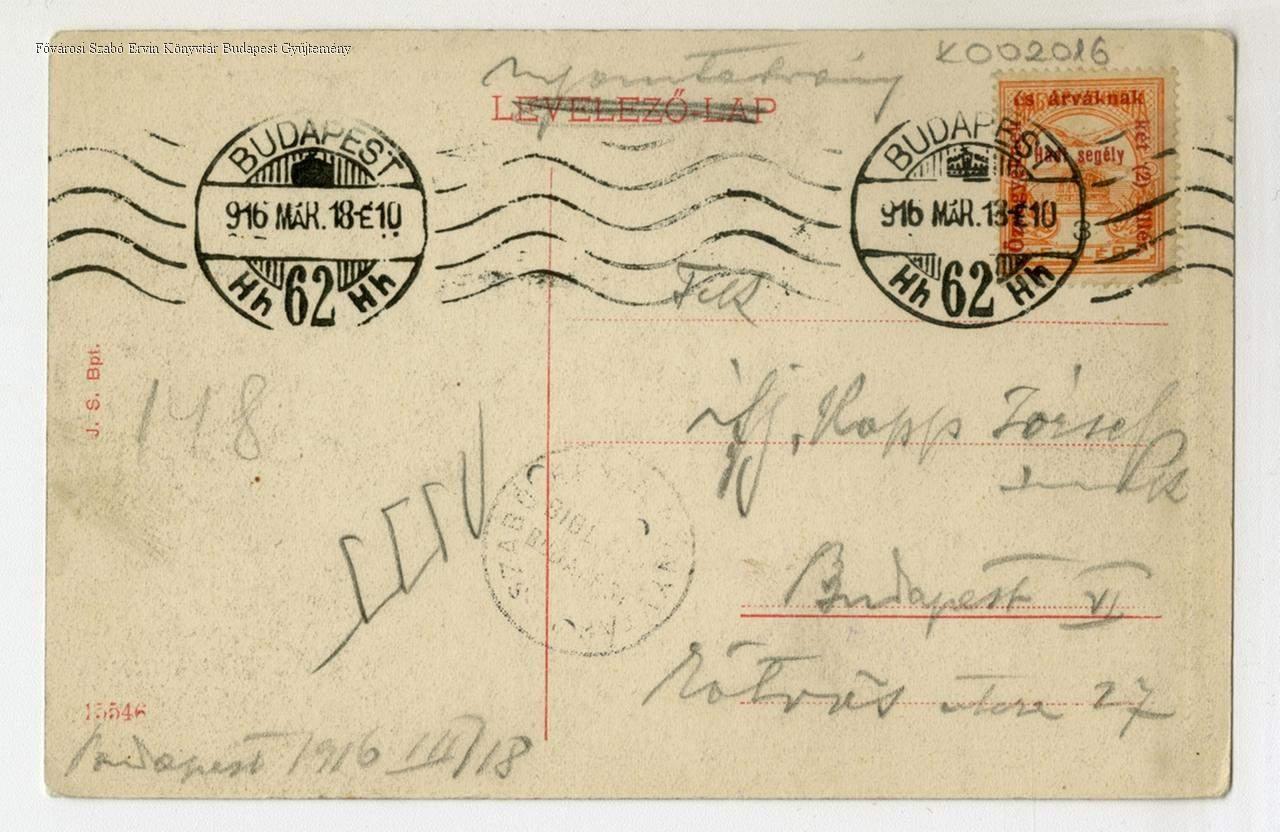 Fővárosi Szabó Ervin Könyvtár Budapest Gyűjtemény
K002016
nyomtatvány
LEVELEZŐ-LAP
és árváknak
Hadi segély
két (2) fillér
BUDAPEST
916 MÁR. 18-É10
Hh 62 Hh
BUDAPEST
916 MÁR. 18-É10
Hh 62 Hh
3
Tek
ifj. Kopp József
J. S. Bpt.
148
Budapest VI
Eötvös utca 27
15546
Budapest 1916 III/18